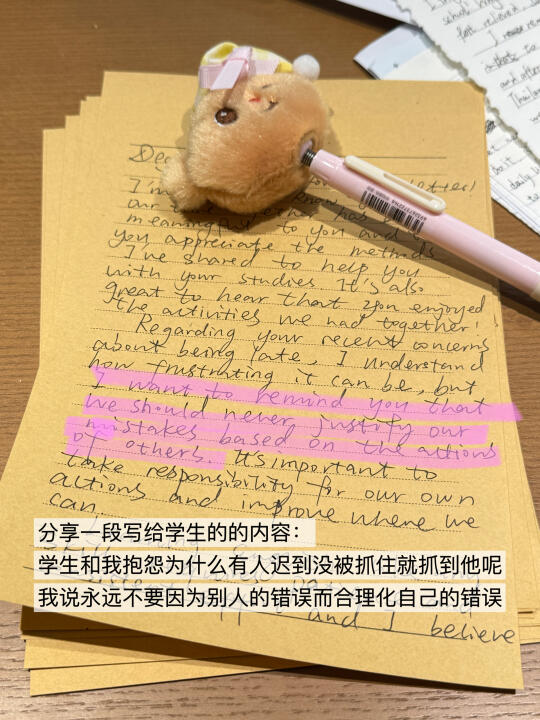 I'm
our
meaningful to you and
you appreciate the methods
I've shared to help you
with your studies It's also
great to hear that you enjoyed
the activities we had together!
Regarding your recent concerns
about being late, I understand
how frustrating it can be, but
I want to remind you that
we should never justify our
mistakes based on the actions
of others. It's important to
take responsibility for our own
actions and improve where we
can.
分享一段写给学生的的内容：
学生和我抱怨为什么有人迟到没被抓住就抓到他呢
我说永远不要因为别人的错误而合理化自己的错误
and I believe